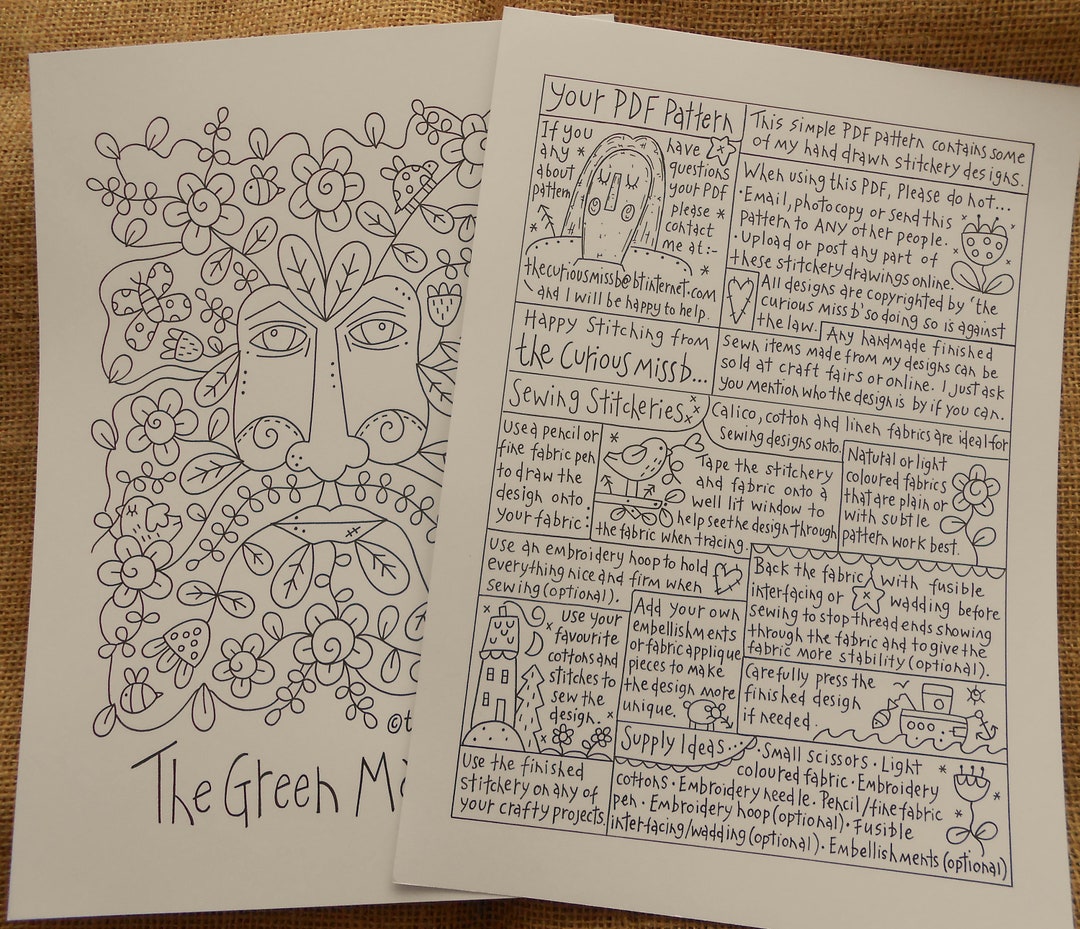 The Green Ma
©t
Your PDF Pattern
If you have
any * questions
about your PDF
pattern please *
contact
me at:-
thecuriousmissb@btinternet.com
and I will be happy to help.
Happy Stitching from
the Curious Missb...
This simple PDF pattern contains some
of my hand drawn stitchery designs.
When using this PDF, Please do not...
• Email, photocopy or send this
pattern to ANY other people.
• Upload or post any part of
these stitchery drawings online.
All designs are copyrighted by 'the
curious missb' so doing so is against
the law.
Any handmade finished
sewn items made from my designs can be
sold at craft fairs or online. I just ask
you mention who the design is by if you can.
Sewing Stitcheries
Calico, cotton and linen fabrics are ideal for
sewing designs onto.
Use a pencil or
fine fabric pen
to draw the
design onto
your fabric
Tape the stitchery
and fabric onto a
well lit window to
help see the design through
the fabric when tracing.
Natural or light
coloured fabrics
that are plain or
with subtle
pattern work best.
Use an embroidery hoop to hold
everything nice and firm when
sewing (optional).
Back the fabric with fusible
interfacing or wadding before
sewing to stop thread ends showing
through the fabric and to give the
fabric more stability (optional).
use your
favourite
cottons and
stitches to
sew the
design.
Add your own
embellishments
or fabric applique
pieces to make
the design more
unique.
Carefully press the
finished design
if needed.
Use the finished
stitchery on any of
your crafty projects.
Supply Ideas...
• Small scissors • Light
coloured fabric • Embroidery
cottons • Embroidery needle. Pencil/fine fabric
pen • Embroidery hoop (optional) • Fusible
interfacing/wadding (optional) • Embellishments (optional)